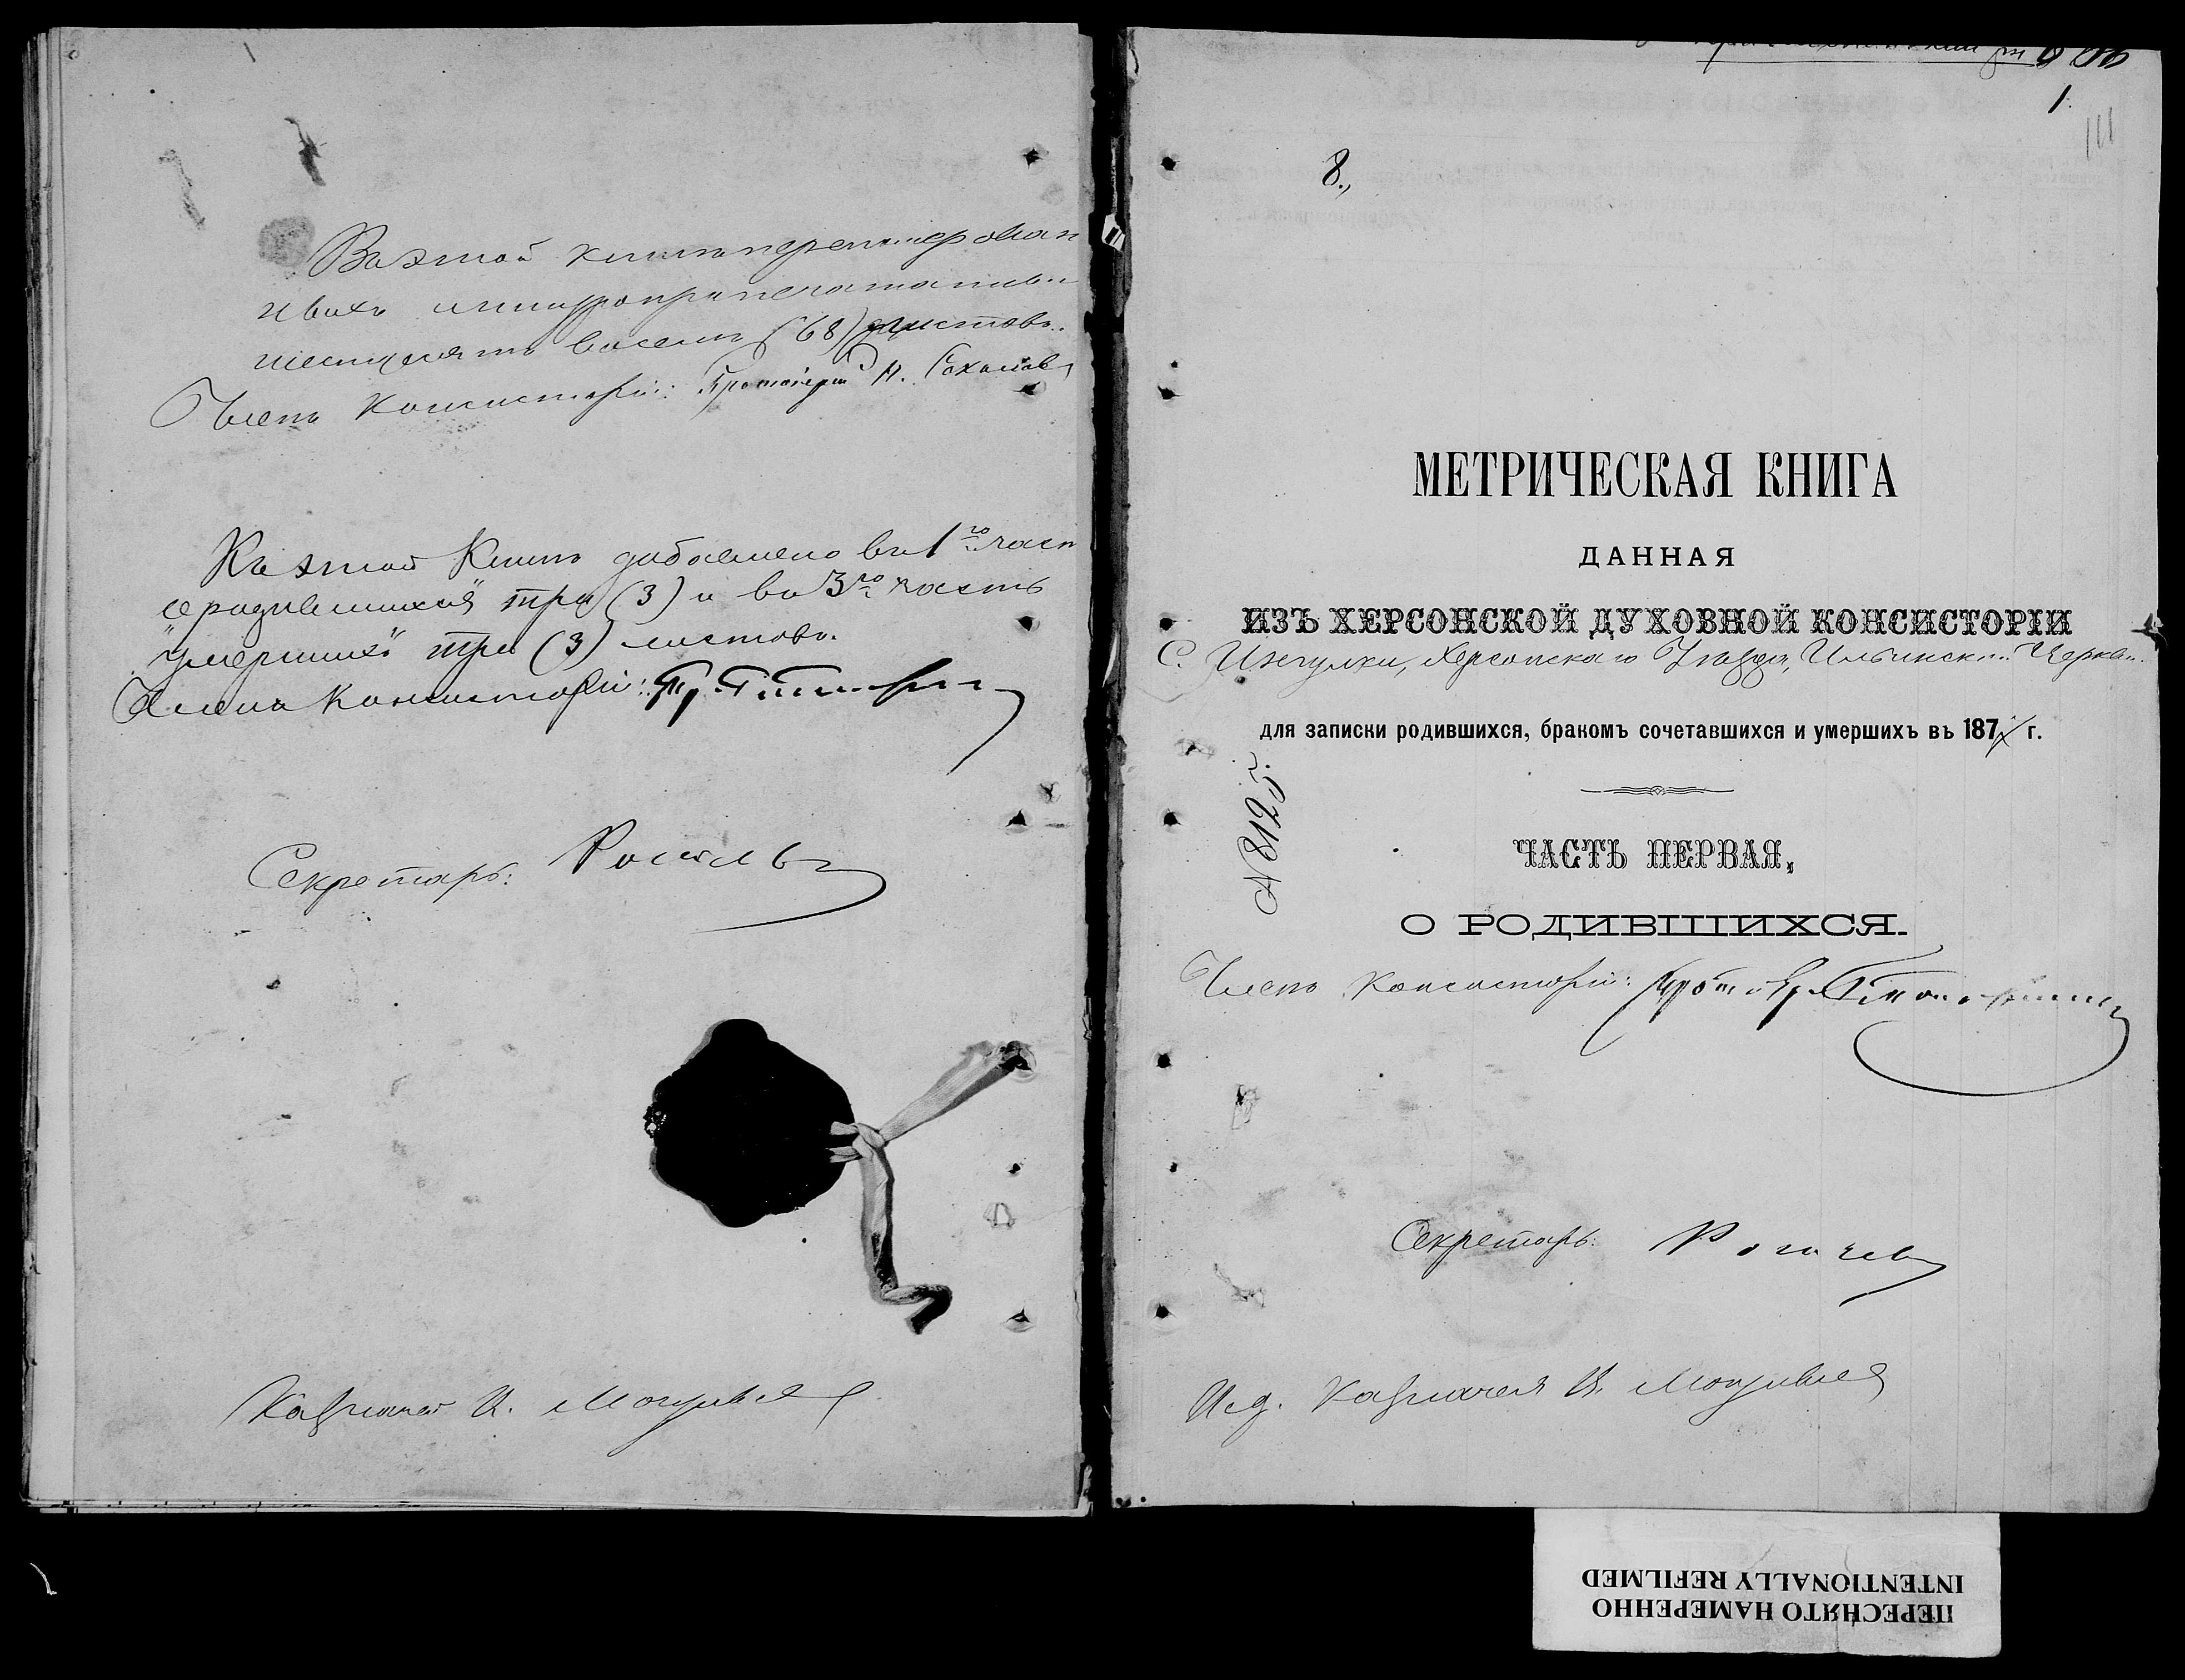 Въ этой книгѣ перенумерован
ныхъ и шнуроприпечатаныхъ
шестьдесятъ восемь (68) листовъ.
Членъ Консисторіи: Протоіерей Соколовъ
Къ этой Книгѣ добавлено въ 1ю част
"о родившихся" три (3) и въ 3ю часть
"умершихъ" три (3) листовъ.
Членъ Консисторіи:
Секретарь:
Казначей И.
1
111
8.,
МЕТРИЧЕСКАЯ КНИГА
ДАННАЯ
ИЗЪ ХЕРСОНСКОЙ ДУХОВНОЙ КОНСИСТОРІИ
С. Ингулки, Херсонскаго Уѣзда, Ильинск.. Церкв..
для записки родившихся, бракомъ сочетавшихся и умершихъ въ 187 г.
№ 8125.
ЧАСТЬ ПЕРВАЯ,
О РОДИВШИХСЯ.
Членъ Консисторіи:
Секретарь: Рогачев
И. д. Казначея И.
ПЕРЕСНЯТО НАМЕРЕННО
INTENTIONALLY REFILMED